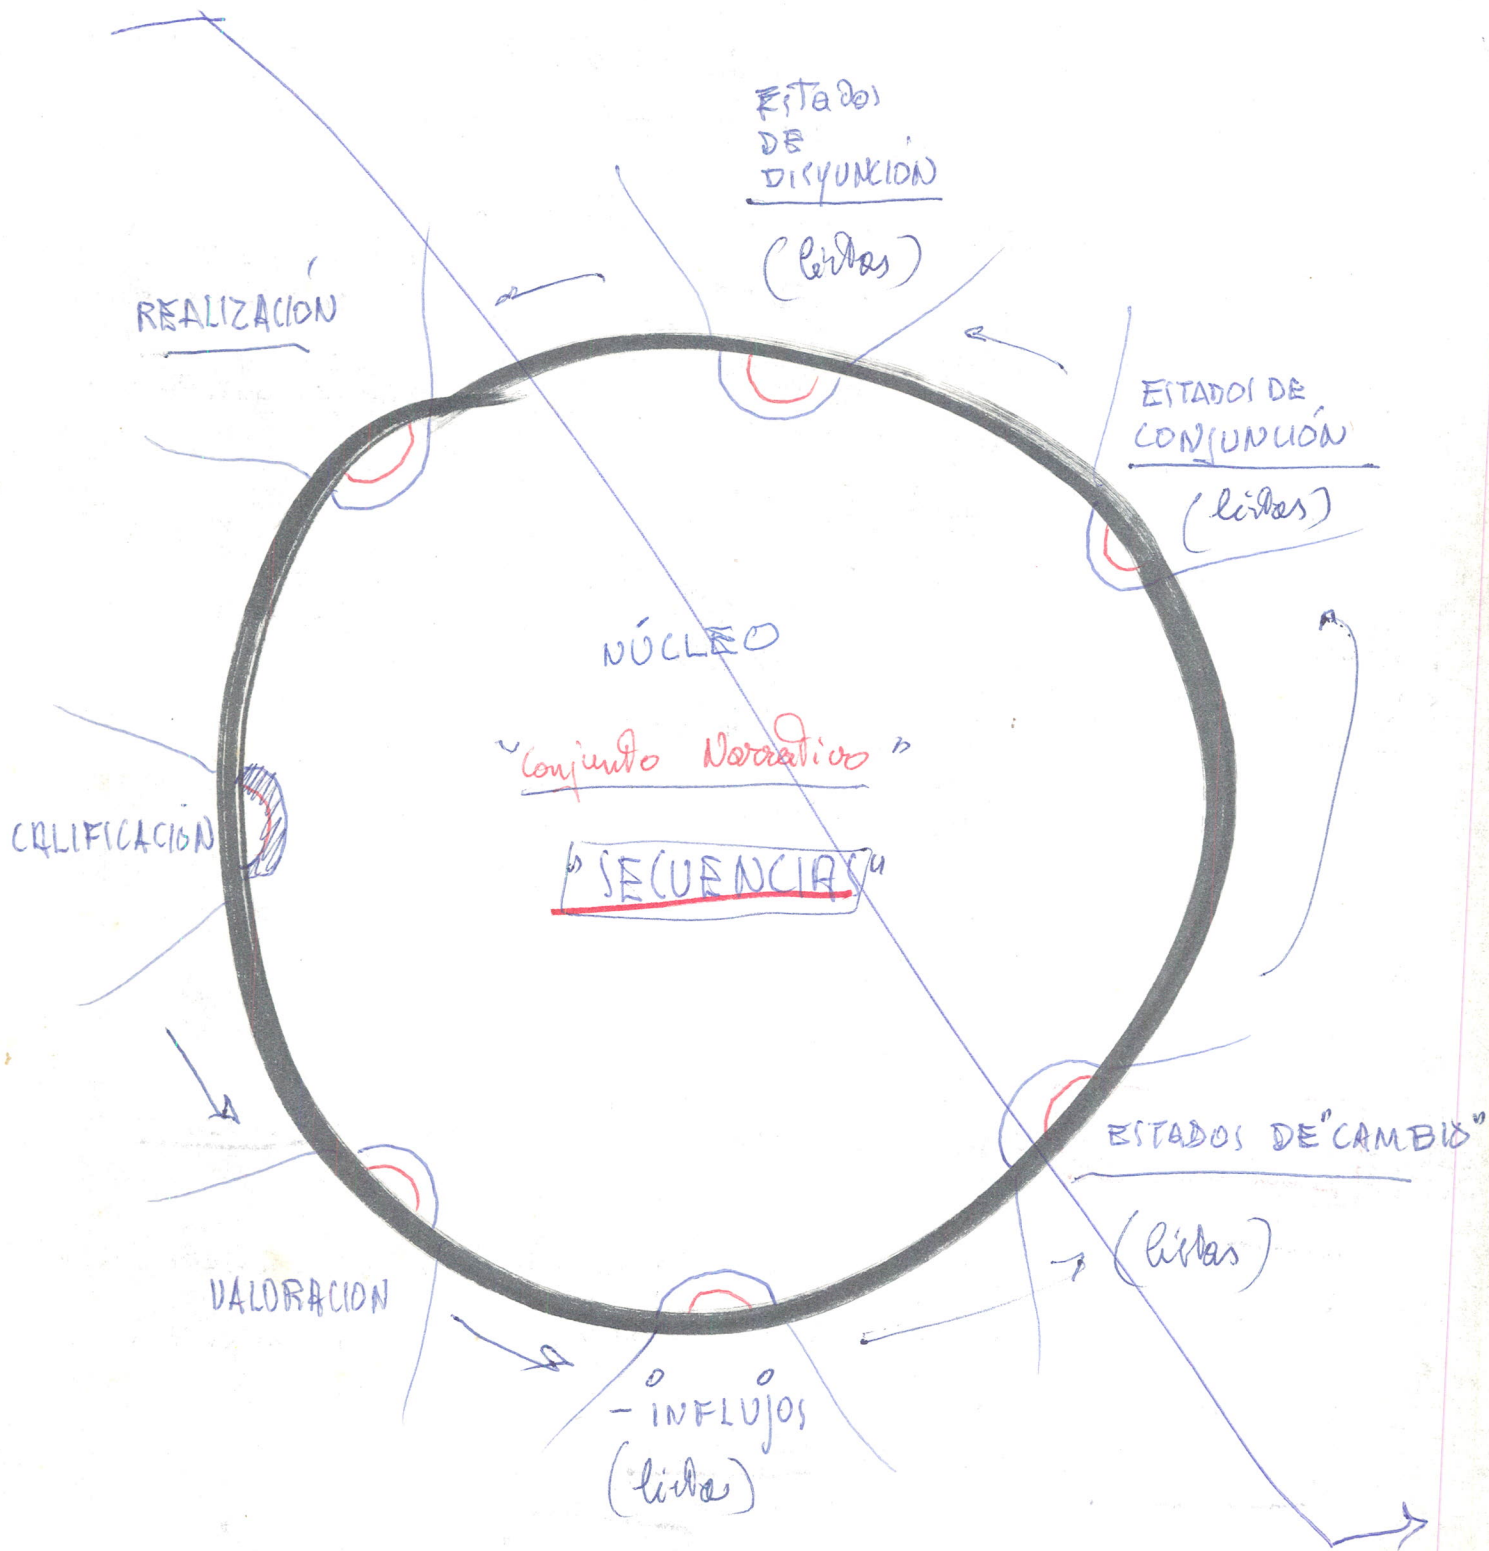 Estados
DE
DISYUNCIÓN
(listas)
REALIZACIÓN
ESTADOS DE
CONJUNCIÓN
(listas)
NÚCLEO
"Conjunto Narrativo"
"SECUENCIAS"
CALIFICACIÓN
ESTADOS DE "CAMBIO"
(listas)
VALORACION
- INFLUJOS
(listas)